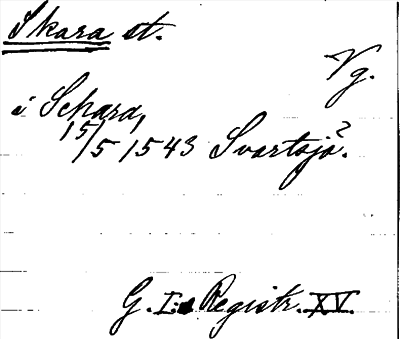 Skara st.
Vg.
i Schara,
15/5 1543 Svartsjö?.
G. I:s Registr. XV.